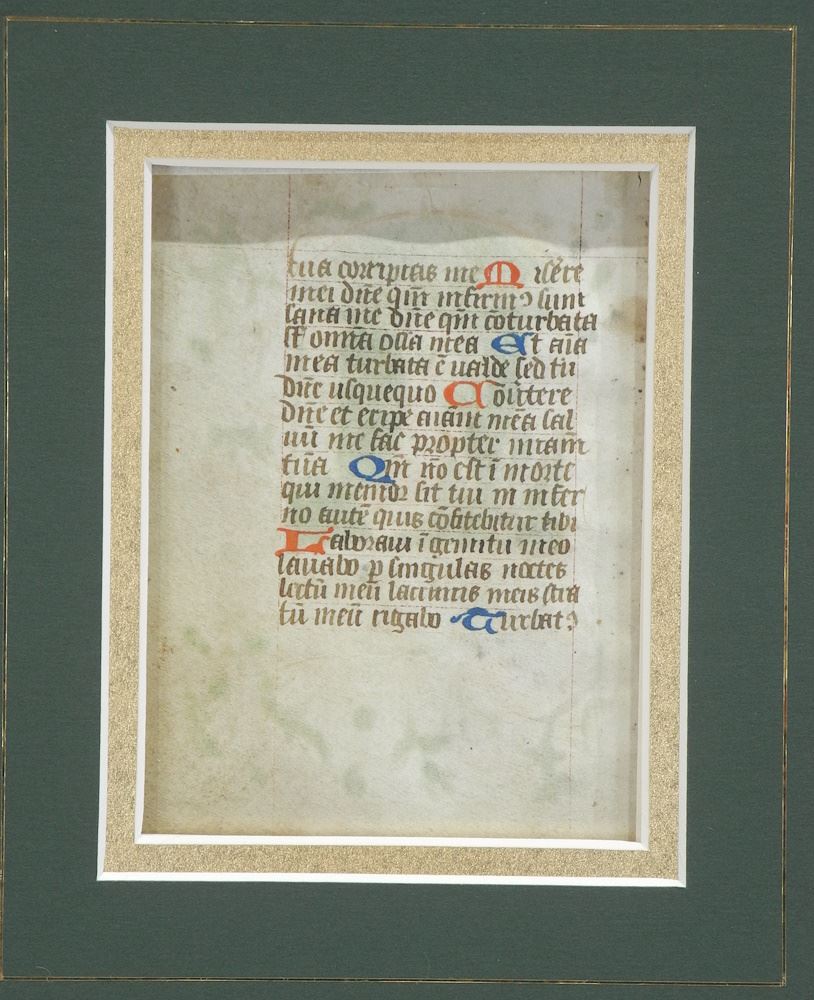 tua corripias me Misere
mei dñe qm̃ infirmꝰ sunt
sana me dñe qm̃ cõturbata
st omnia ossa mea Et aĩa
mea turbata ẽ ualde sed tu
dñe usquequo Conũtere
dñe et eripe aĩam meã sal
uũ me fac propter mĩam
tuã Qm̃ nõ est ĩ morte
qui memor sit tui in infer
no autẽ quis cõfitebitur tibi
Laboraui ĩ gemitu meo
lauabo ꝑ singulas noctes
lectũ meũ lacrimis meis stra
tũ meũ rigabo Turbatꝰ